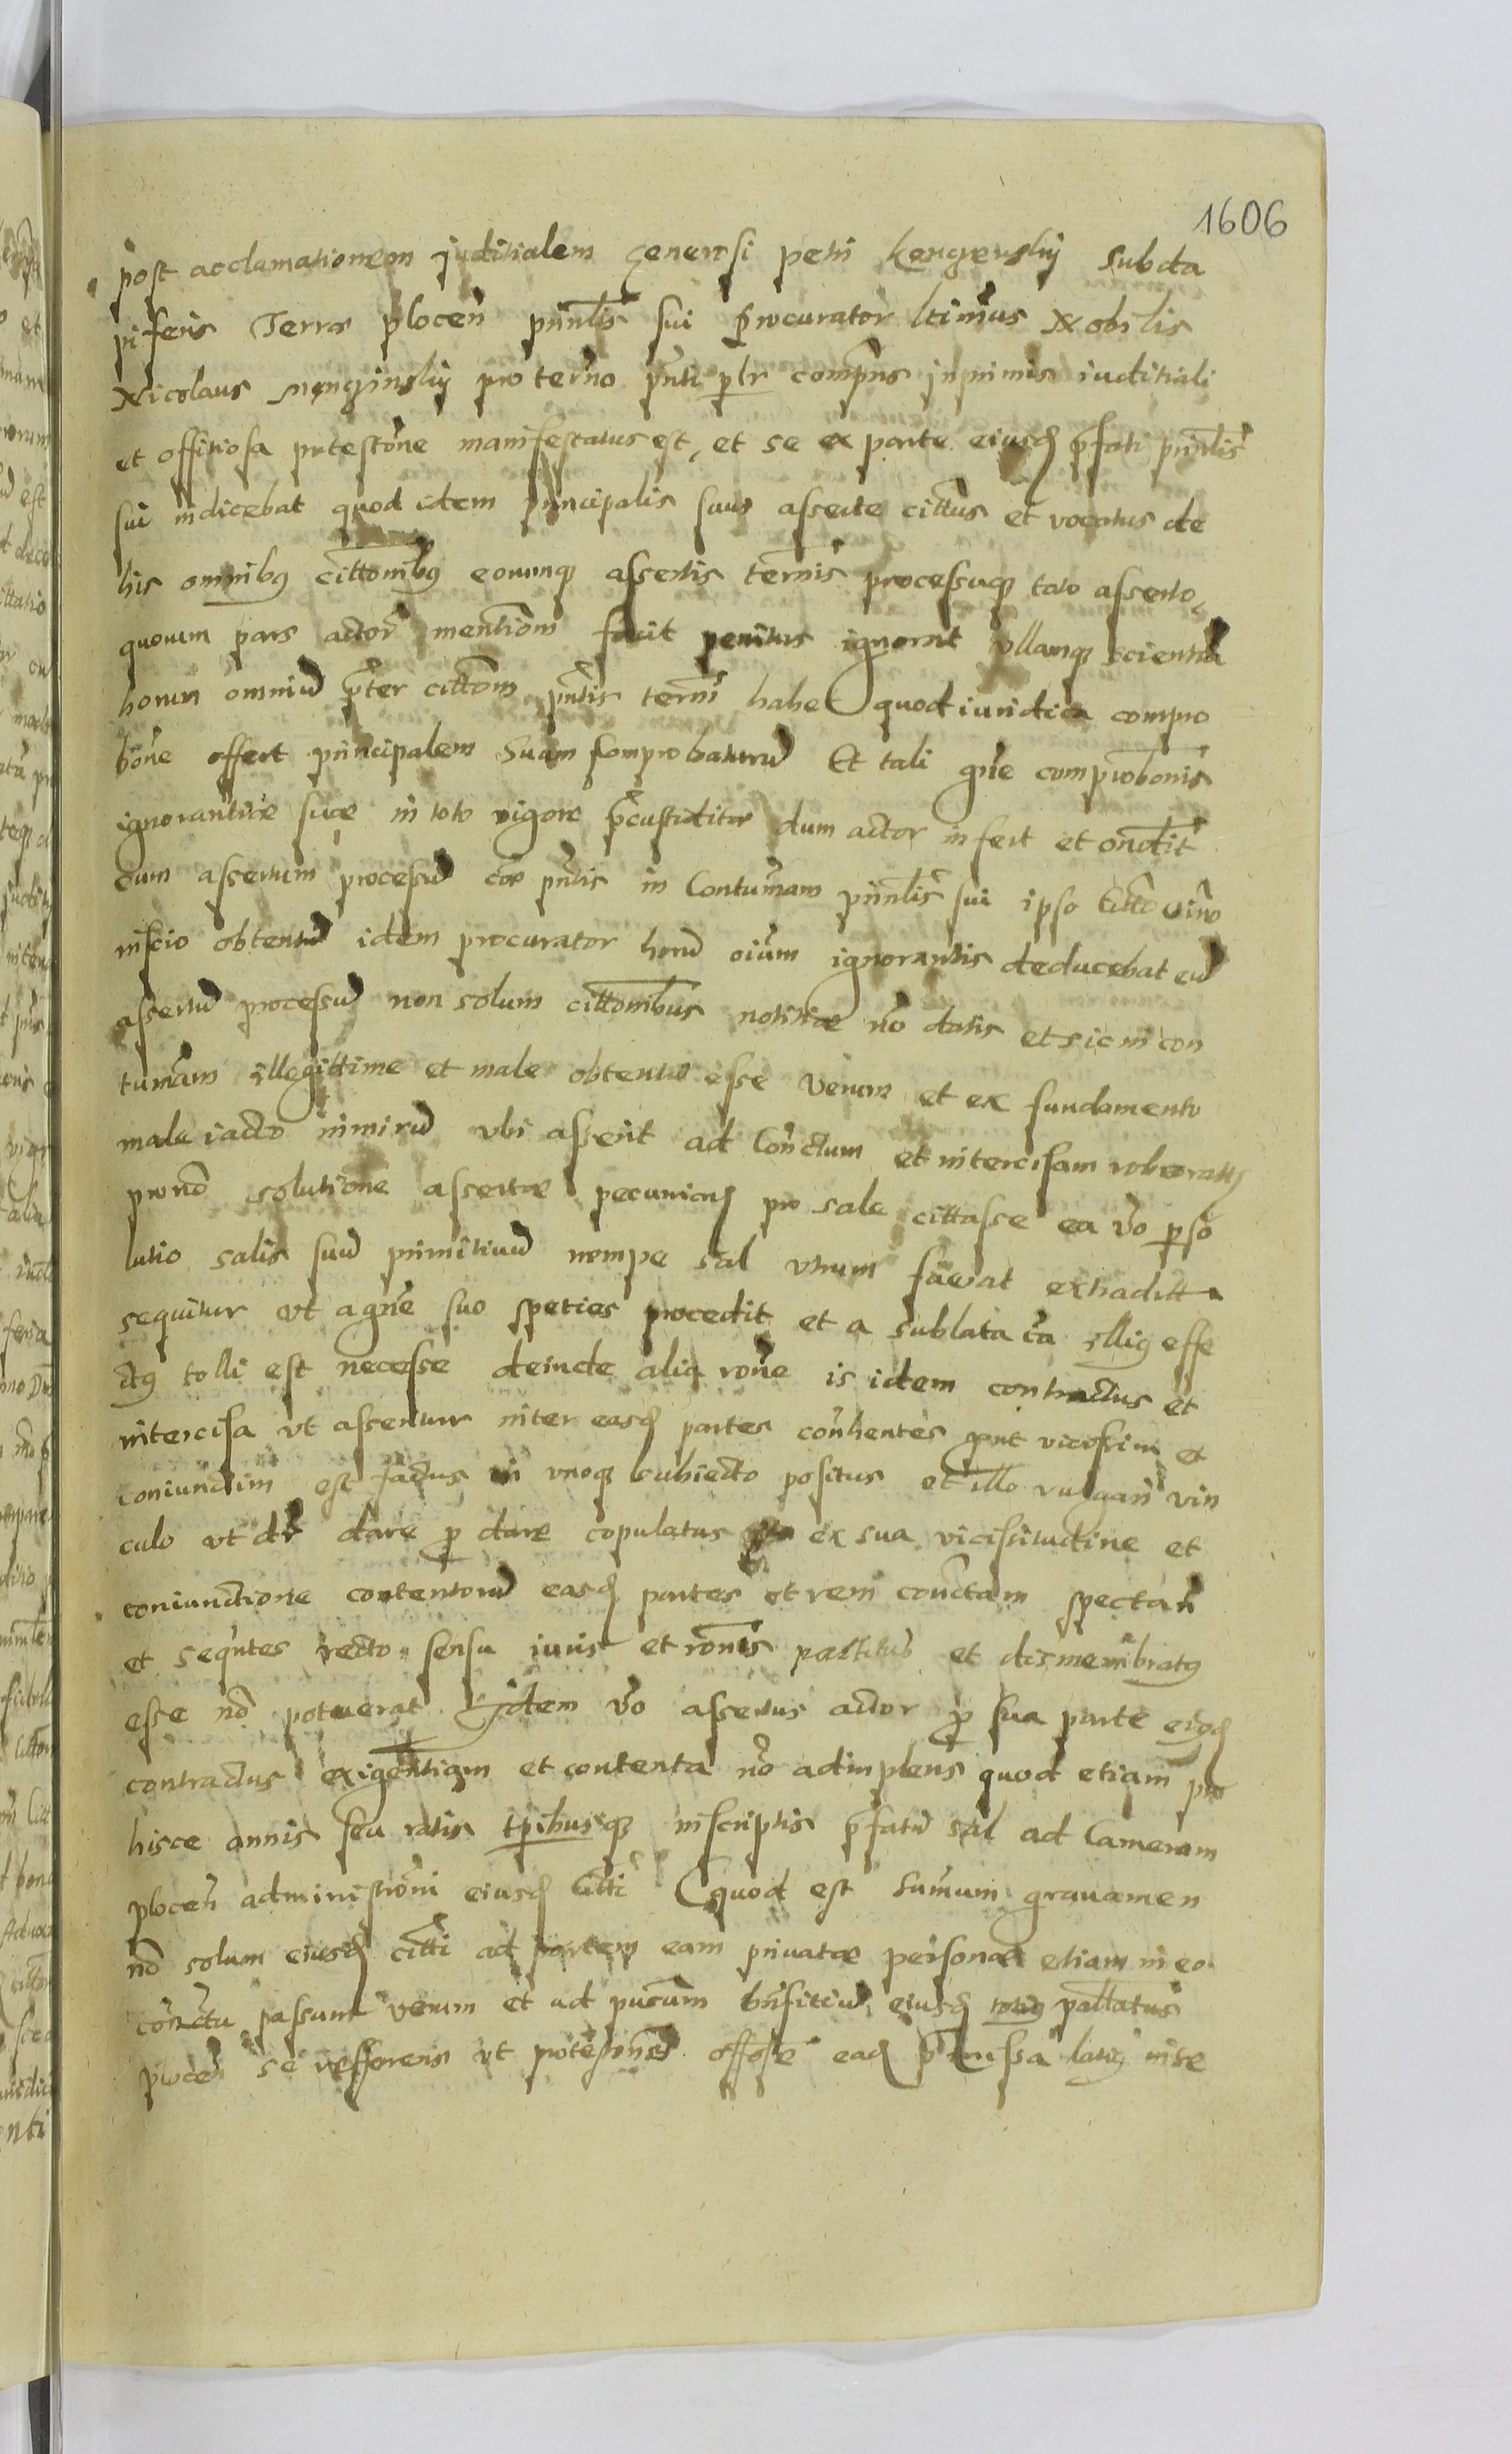 1606
post acclamationem juditialem Generosi petri kengerskij Subda
piferis Terrae plocen̄ prinlis sui procurator ltimus Nobilis
Nicolaus pro termo pnti plr compns inprimis iuditiali
et offitiosa protestone manifestatus est, et se ex parte eiusd prfati prinlis
sui indicebat quod idem principalis suus asserte cittus et vocatus de
his omnibq cittonibq eorumq assertis termis processuq toto asserto
quorum pars actor mentiom facit penitus ignorat vllamq scientia
horum omniu prter cittom pntis termi habet quod iuridica compro
bone offert principalem Suum comprobaturu Et tali gne comprobonis
ignorantiae suae in toto vigore dum actor infert et ondit
eum assertum processu cor pntis in Contumam prinlis sui ipso Citto
inscio obtentu idem procurator horu oium ignorantis deducebat eu
assertu processu non solum cittonibus notitiae no datis et sic in con
tumam illegittime et male obtentu esse Verum et ex fundamento
male iacto nimiru vbi asserit ad Conctum et intercisam roboratq
pro no solutione assertae pecuniae pro sale cittasse ea vo perso
lutio salis suu primitiuu nempe sal vtrum fuerat
sequitur vt a gne suo speties procedit et a sublata ca illiq effe
ctq tolli est necesse deinde alia rone is idem contractus et
intercisa vt asseritur inter easd partes conhentes vicissim et
coniunctim est factus in vnoq subiecto positus et illo vulgari vin
culo vt dr dare pr dare copulatus ex sua vicissitudine et
coniunctione contentoru easd partes et rem conctam spectan
et sequtes recto sensu iuris et ronis partitus et dismembratq
esse no potuerat Idem vo assertus actor pr sua parte eiusd
contractus exigentiam et contenta no adimplens quod etiam pro
hisce annis seu ratis tpribusq inscriptis prfatu sal ad Cameram
plocen administroni eiusd Citti quod est sumum grauamen
no solum eiusd citti ad partem eam priuatae personae etiam in eo
conctu passum verum et ad pucum bnfitiu eiusd totiq pallatus
plocen se refferens vt protestones offose ead prmissa latiq in se